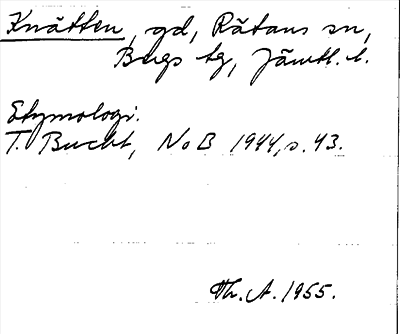 Knätten, gd, Rätans sn,
Bergs tg, Jämtl. l.
Etymologi.
T. Bucht, NoB 1944, s. 43.
Th. A. 1955.